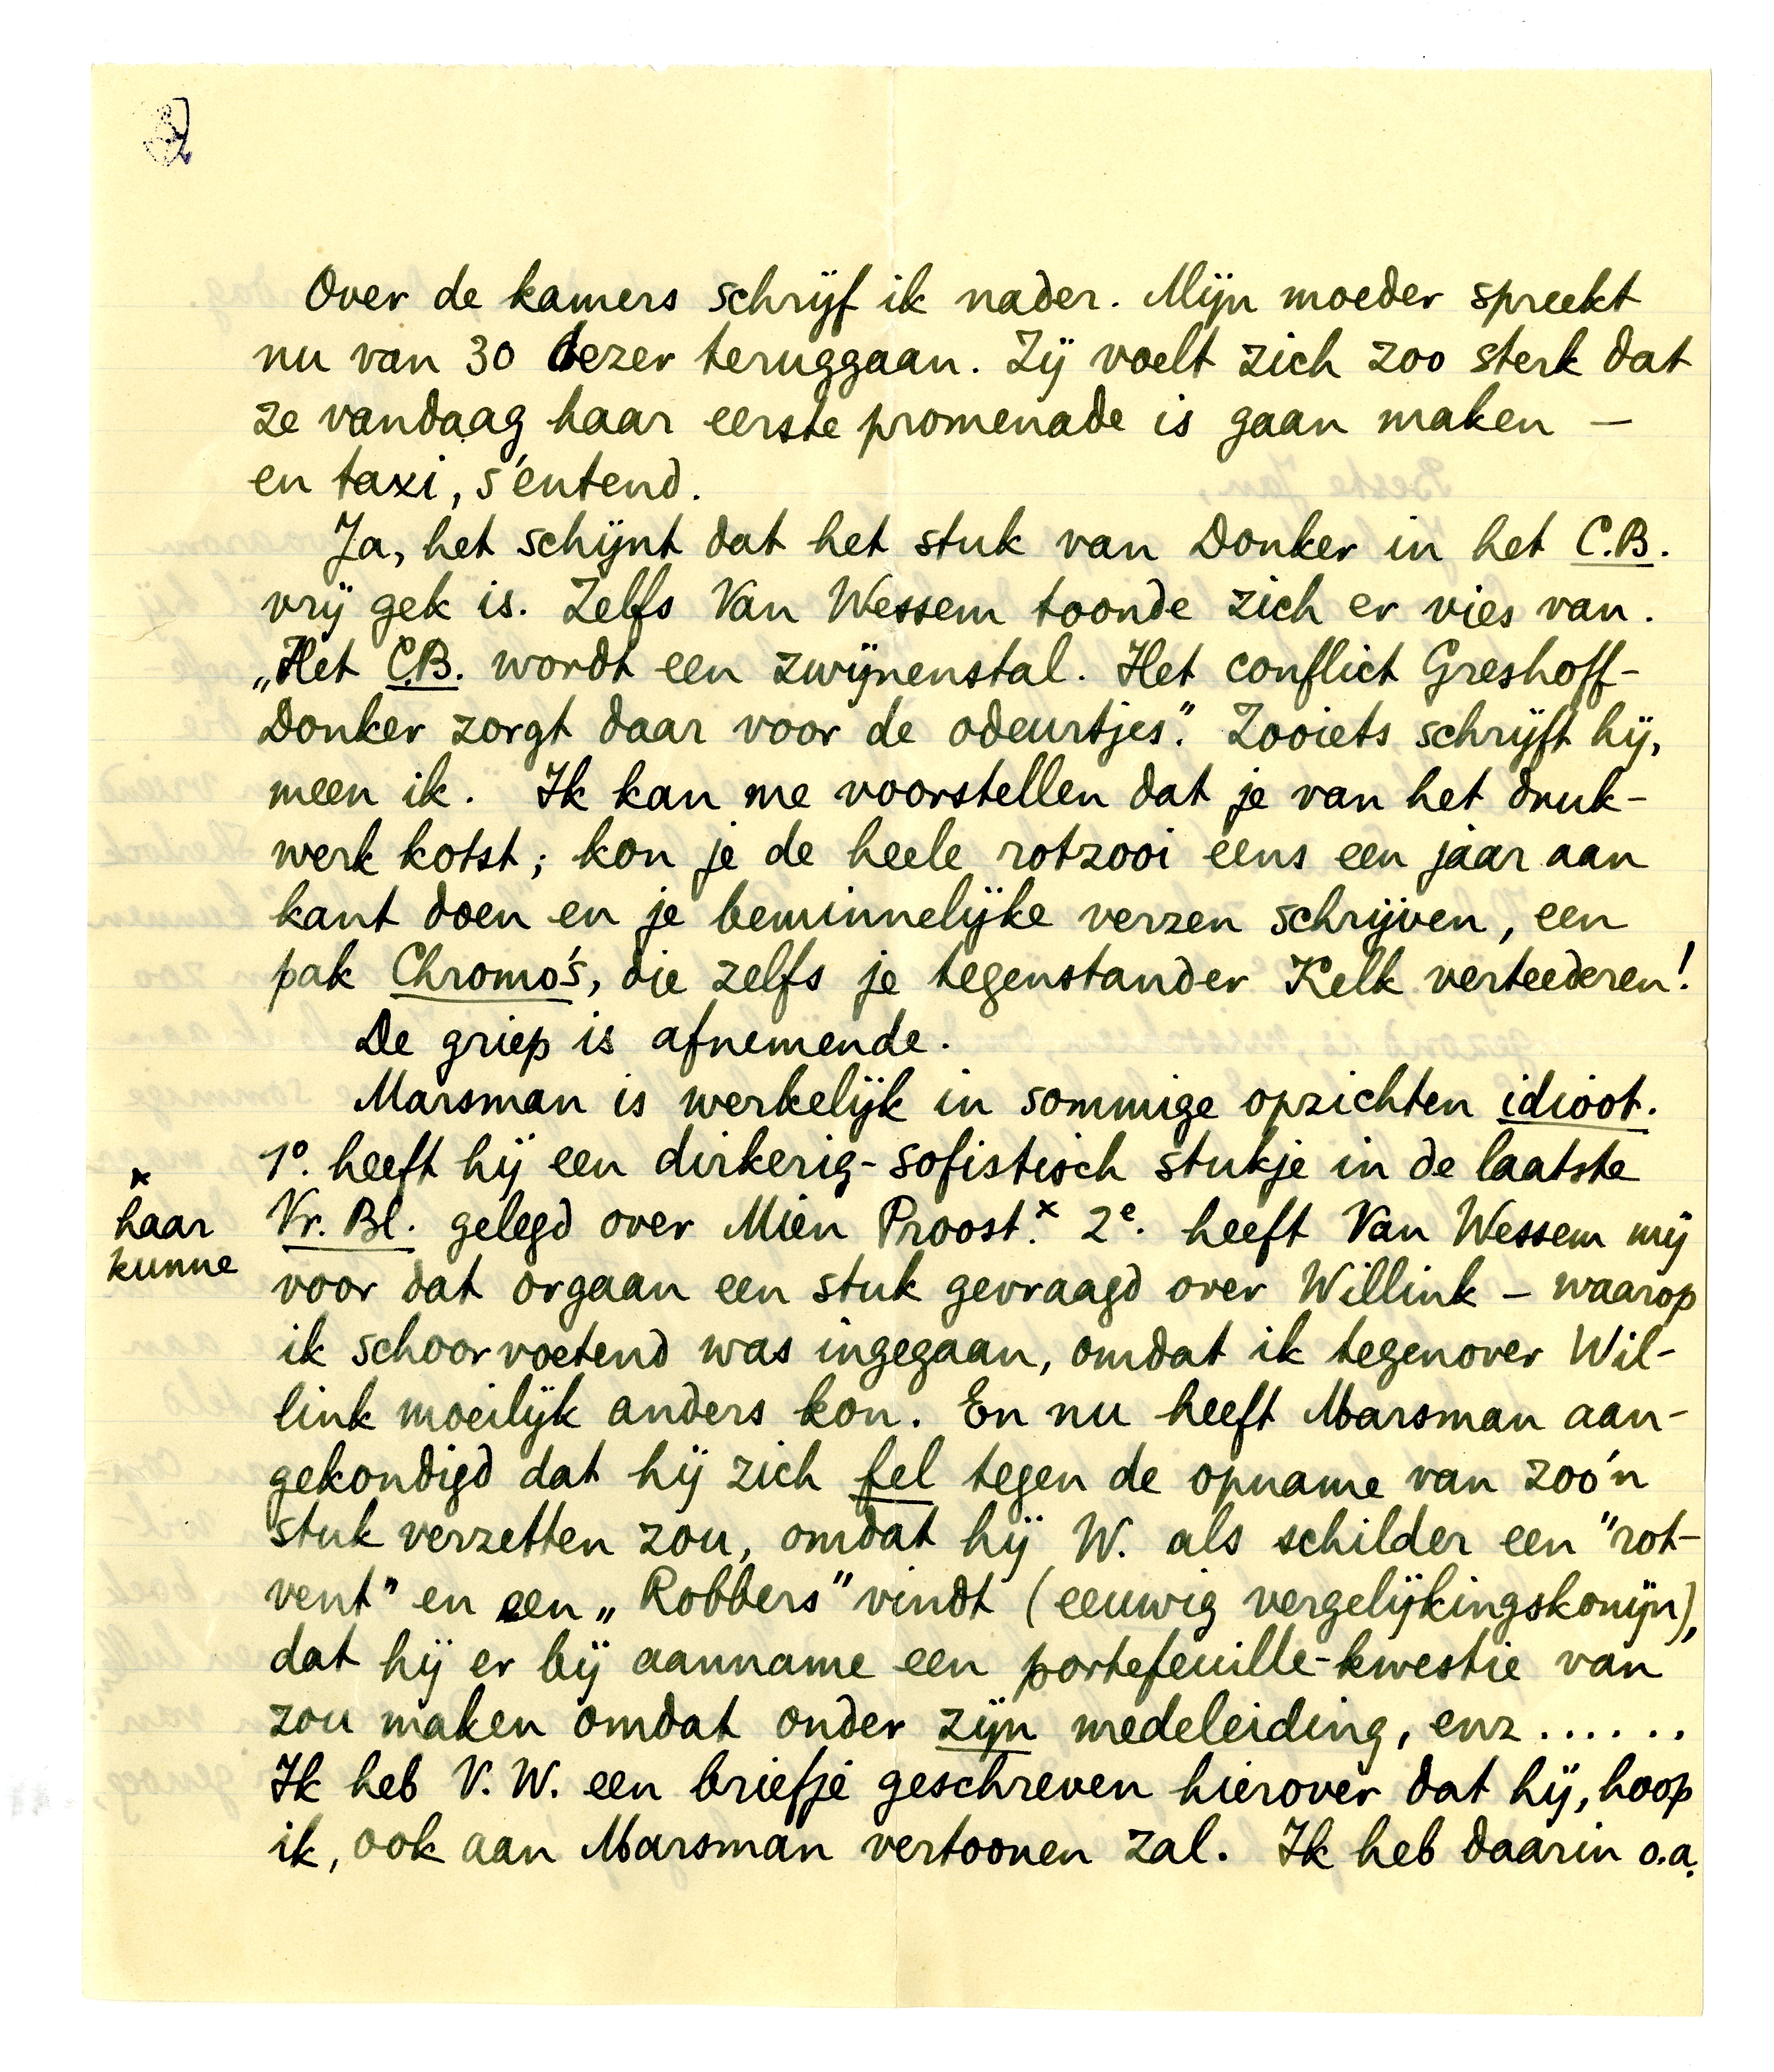 Over de kamers schrijf ik nader. Mijn moeder spreekt
nu van 30 dezer teruggaan. Zij voelt zich zoo sterk dat
ze vandaag haar eerste promenade is gaan maken –
en taxi, s'entend.
Ja, het schijnt dat het stuk van Donker in het C.B.
vrij gek is. Zelfs Van Wessem toonde zich er vies van.
„Het C.B. wordt een zwijnenstal. Het conflict Greshoff-
Donker zorgt daar voor de odeurtjes." Zooiets schrijft hij,
meen ik. Ik kan me voorstellen dat je van het druk-
werk kotst; kon je de heele rotzooi eens een jaar aan
kant doen en je beminnelijke verzen schrijven, een
pak Chromo's, die zelfs je tegenstander Kelk verteederen!
De griep is afnemende.
Marsman is werkelijk in sommige opzichten idioot.
1º. heeft hij een dirkerig-sofistisch stukje in de laatste
Vr. Bl. gelegd over Mien Proost.x 2e. heeft Van Wessem mij
x
haar
kunne
voor dat orgaan een stuk gevraagd over Willink – waarop
ik schoorvoetend was ingegaan, omdat ik tegenover Wil-
link moeilijk anders kon. En nu heeft Marsman aan-
gekondigd dat hij zich fel tegen de opname van zoo'n
stuk verzetten zou, omdat hij W. als schilder een "rot-
vent" en een „Robbers" vindt (eeuwig vergelijkingskonijn),
dat hij er bij aanname een portefeuille-kwestie van
zou maken omdat onder zijn medeleiding, enz......
Ik heb V. W. een briefje geschreven hierover dat hij, hoop
ik, ook aan Marsman vertoonen zal. Ik heb daarin o.a.